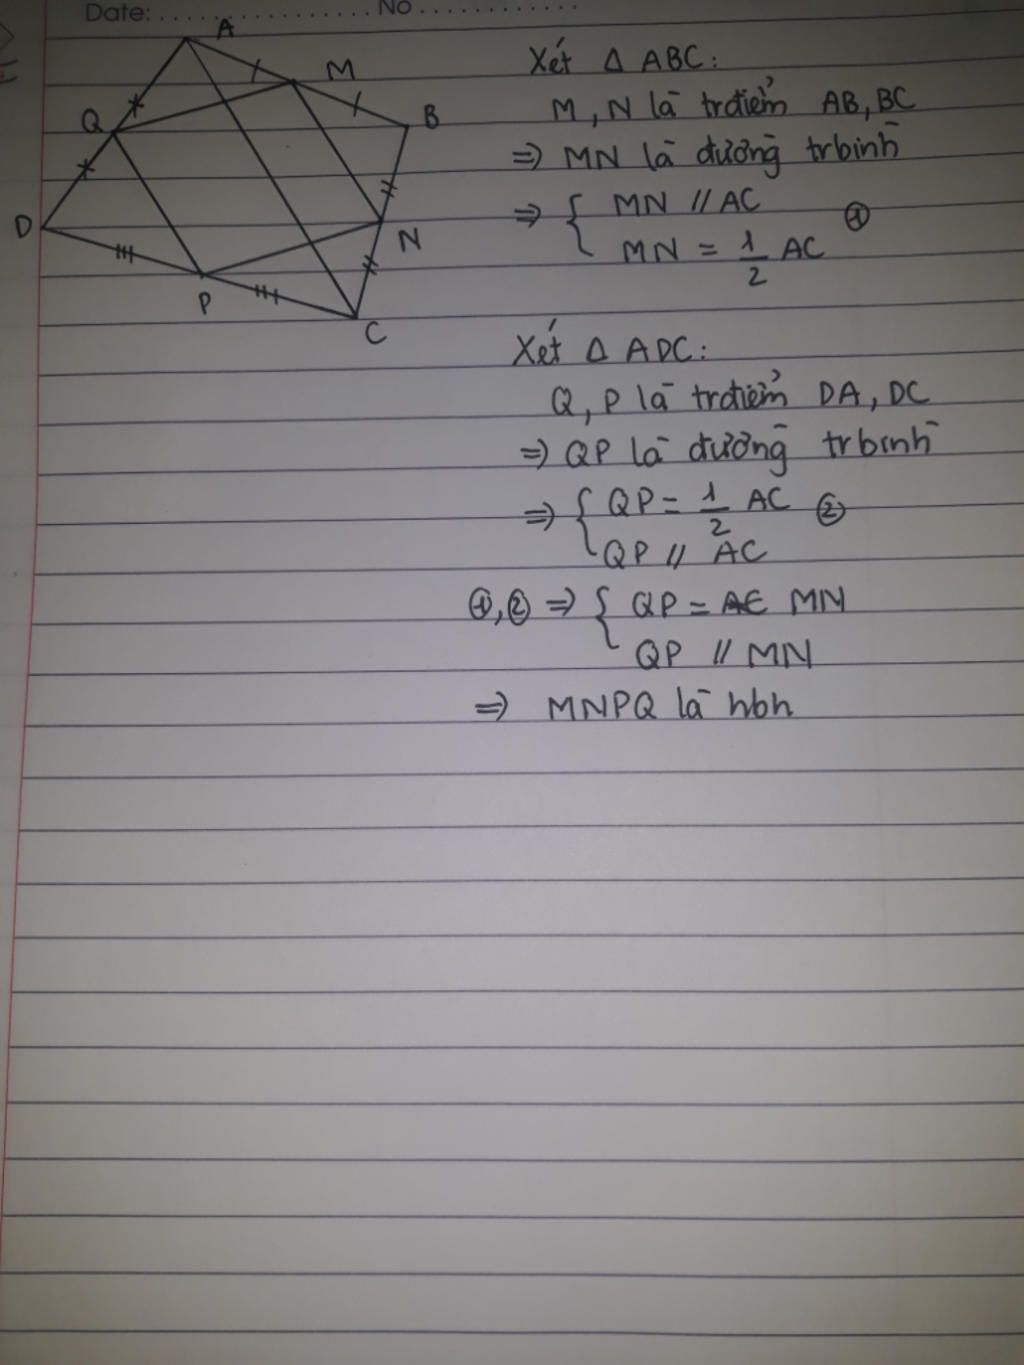 Date: ................ No ............
A
M
Q
B
D
N
P
C
Xét Δ ABC:
M, N là trđiểm AB, BC
=> MN là đường trbình
=> { MN // AC
MN = 1/2 AC ①
Xét Δ ADC:
Q, P là trđiểm DA, DC
=> QP là đường trbình
=> { QP = 1/2 AC ②
QP // AC
①, ② => { QP = AC MN
QP // MN
=> MNPQ là hbh